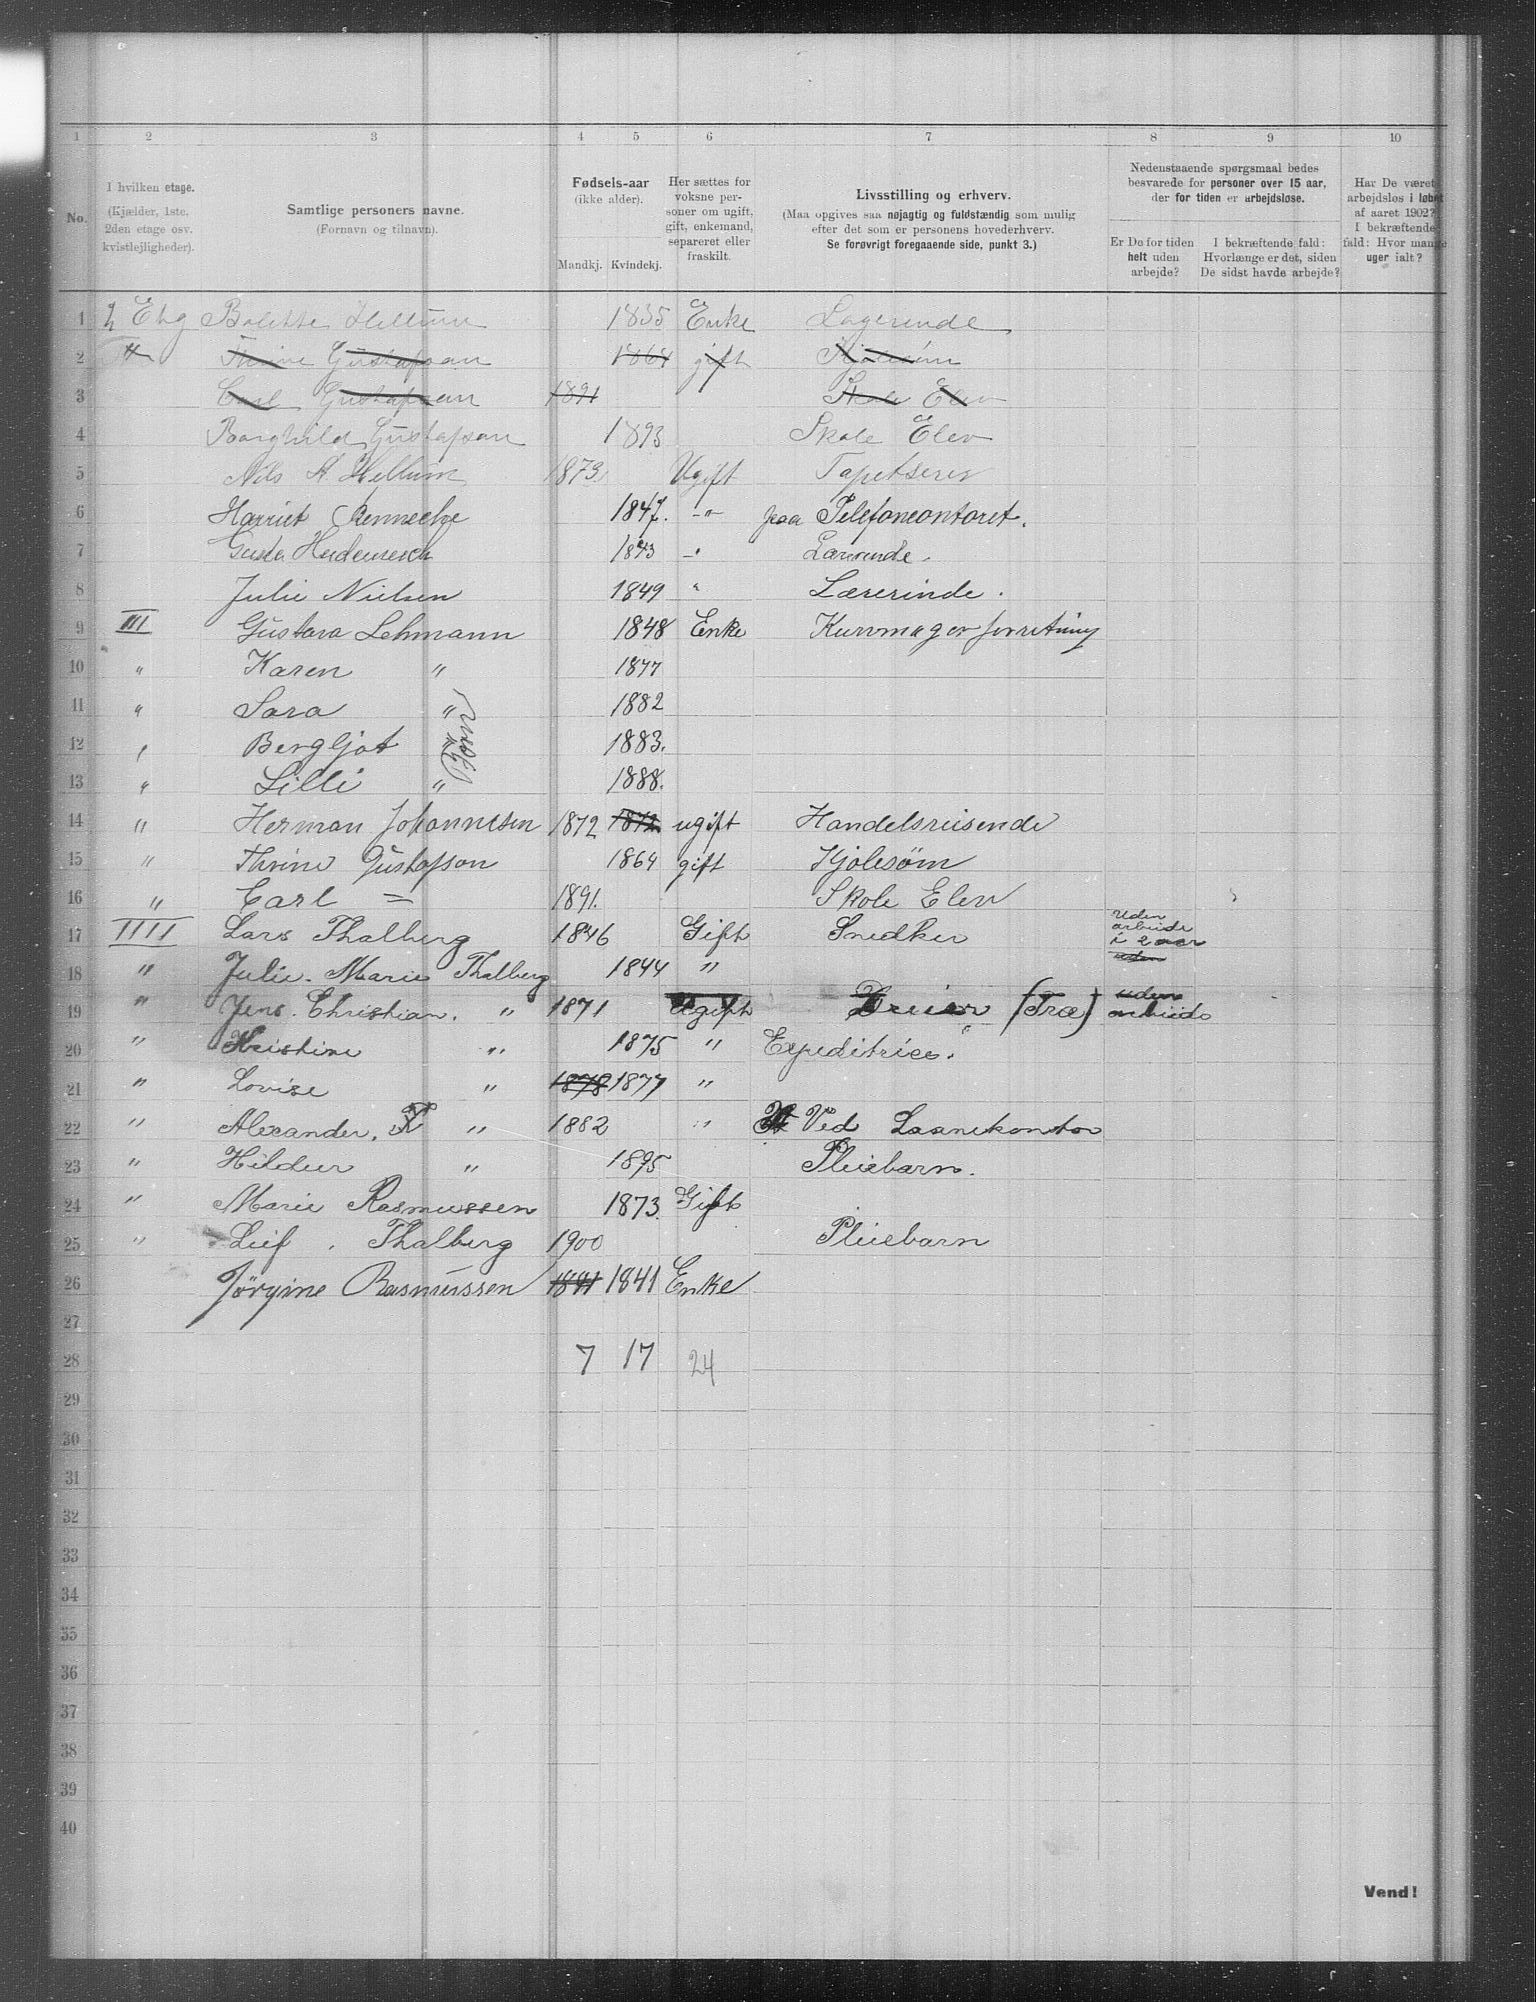 1 2 3 4 5 6 7 8 9 10
No.
I hvilken etage.
(Kjælder, 1ste,
2den etage osv.
kvistlejligheder).
Samtlige personers navne.
(Fornavn og tilnavn).
Fødsels-aar
(ikke alder).
Mandkj. Kvindekj.
Her sættes for
voksne per-
soner om ugift,
gift, enkemand,
separeret eller
fraskilt.
Livsstilling og erhverv.
(Maa opgives saa nøjagtig og fuldstændig som mulig
efter det som er personens hovederhverv.
Se forøvrigt foregaaende side, punkt 3.)
Nedenstaaende spørgsmaal bedes
besvarede for personer over 15 aar,
der for tiden er arbejdsløse.
Er De for tiden
helt uden
arbejde?
I bekræftende fald:
Hvorlænge er det, siden
De sidst havde arbejde?
Har De været
arbejdsløs i løbet
af aaret 1902?
I bekræftende
fald: Hvor mange
uger ialt?
1 2 Etg Bolette Hellum 1835 Enke Logerinde
2 Thrine Gustafsan 1864 gift Kjolesøm
3 Carl Gustafsan 1891 Skole Elev
4 Borghild Gustafson 1893 Skole Elev
5 Nils A Hellum 1873. Ugift Tapetserer
6 Harriet 1847. -"- paa Telefoncontoret.
7 Gusta 1843 -" Lærerinde.
8 Julie Nielsen 1849 " Lærerinde.
9 III Gustava Lehmann 1848 Enke Kurvmagerforretning
10 " Karen " 1877
11 " Sara " 1882
12 " Bergljot 1883.
13 " Lilli " 1888.
14 " Herman Johannesen 1872 1872 ugift Handelsreisende
15 " Thrine Gustafson 1864 gift Kjolesøm
16 " Carl = 1891. Skole Elev
17 IIII Lars Thalberg 1846 Gift Snedker uden arbeide i 2 aar
18 " Julie. Marie Thalberg 1844 " uden
19 " Jens. Christian. " 1871 Ugift Dreier (Træ) uden arbeide
20 " Kristine " 1875 " Expeditrice.
21 " Lovise " 1878 1877 "
22 " Alexander. T " 1882 " Ved Laanekontor
23 " Hildur " 1895 Pleiebarn.
24 " Marie Rasmussen 1873. Gift
25 " Leif. Thalberg 1900 Pleiebarn
26 Jörgine Rasmussen 1841 1841 Enke
27
28 7 17 24
29
30
31
32
33
34
35
36
37
38
39
40
Vend!